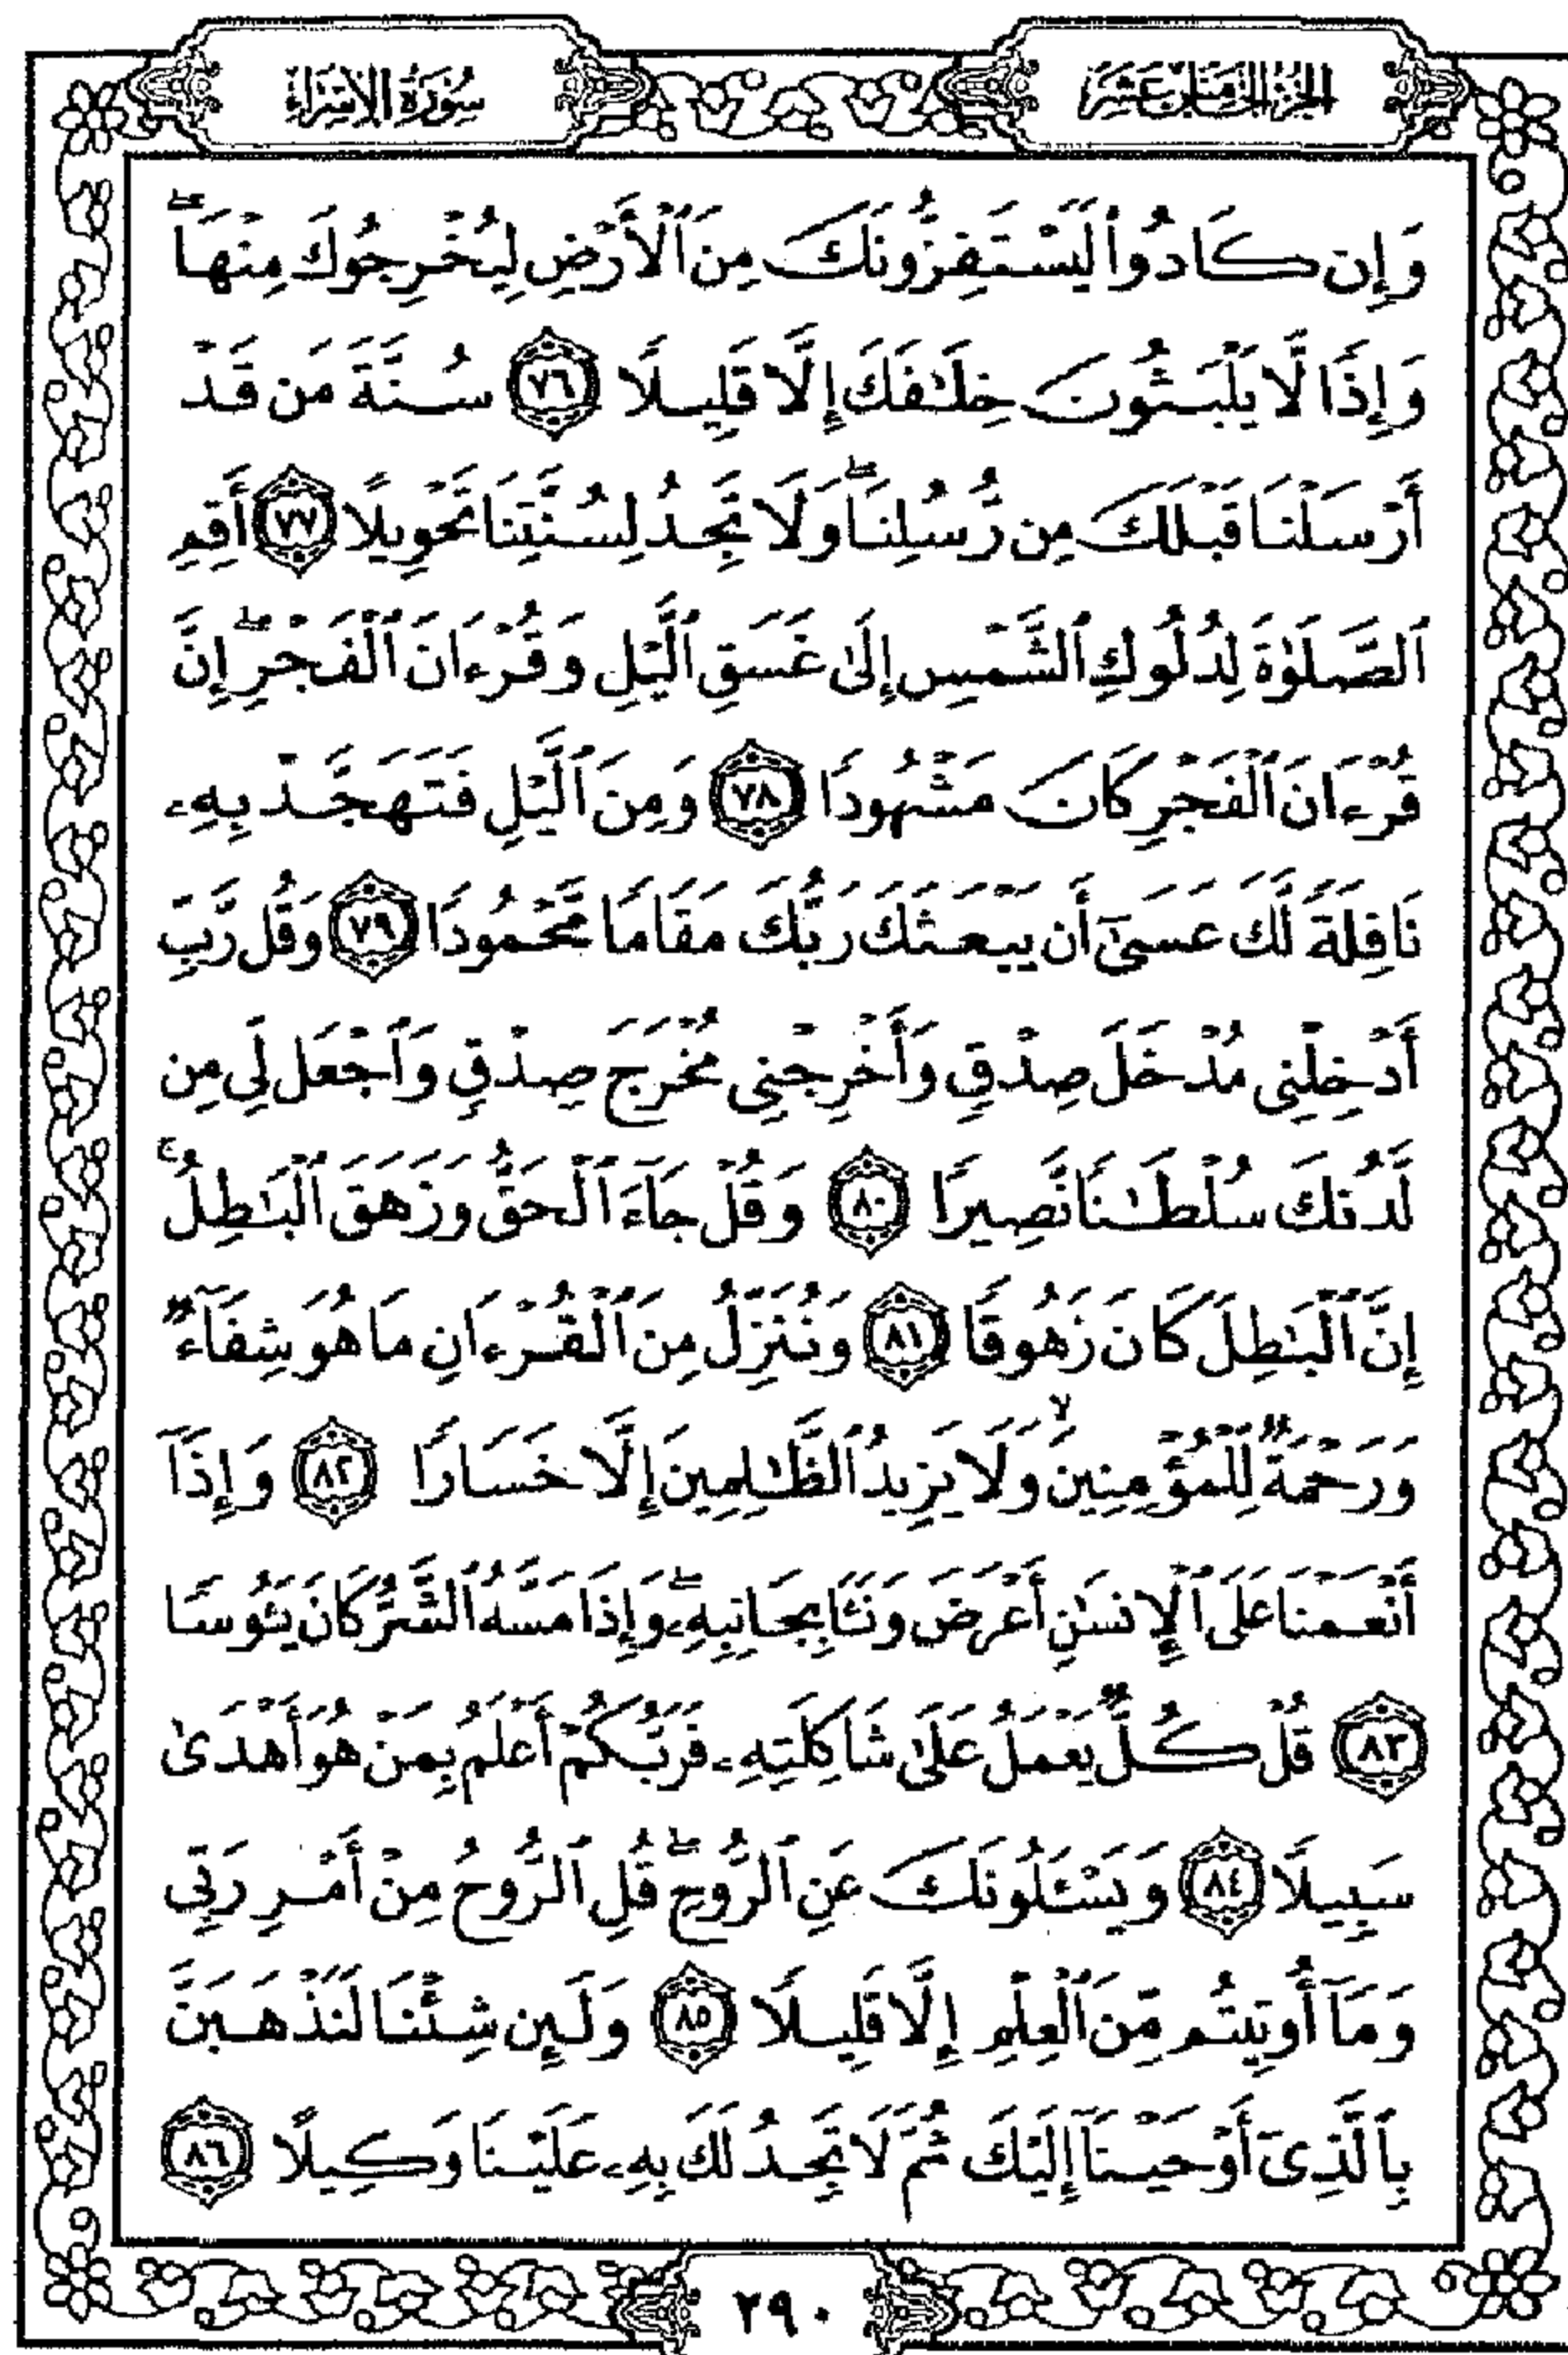 سُورَةُ الإِسْرَاءِ
الجُزْءُ الخَامِسَ عَشَرَ
وَإِن كَادُوا۟ لَيَسْتَفِزُّونَكَ مِنَ ٱلْأَرْضِ لِيُخْرِجُوكَ مِنْهَا ۖ
وَإِذًا لَّا يَلْبَثُونَ خِلَـٰفَكَ إِلَّا قَلِيلًا ٧٦ سُنَّةَ مَن قَدْ
أَرْسَلْنَا قَبْلَكَ مِن رُّسُلِنَا ۖ وَلَا تَجِدُ لِسُنَّتِنَا تَحْوِيلًا ٧٧ أَقِمِ
ٱلصَّلَوٰةَ لِدُلُوكِ ٱلشَّمْسِ إِلَىٰ غَسَقِ ٱلَّيْلِ وَقُرْءَانَ ٱلْفَجْرِ ۖ إِنَّ
قُرْءَانَ ٱلْفَجْرِ كَانَ مَشْهُودًا ٧٨ وَمِنَ ٱلَّيْلِ فَتَهَجَّدْ بِهِۦ
نَافِلَةً لَّكَ عَسَىٰٓ أَن يَبْعَثَكَ رَبُّكَ مَقَامًا مَّحْمُودًا ٧٩ وَقُل رَّبِّ
أَدْخِلْنِى مُدْخَلَ صِدْقٍ وَأَخْرِجْنِى مُخْرَجَ صِدْقٍ وَٱجْعَل لِّى مِن
لَّدُنكَ سُلْطَـٰنًا نَّصِيرًا ٨٠ وَقُلْ جَآءَ ٱلْحَقُّ وَزَهَقَ ٱلْبَـٰطِلُ ۚ
إِنَّ ٱلْبَـٰطِلَ كَانَ زَهُوقًا ٨١ وَنُنَزِّلُ مِنَ ٱلْقُرْءَانِ مَا هُوَ شِفَآءٌ
وَرَحْمَةٌ لِّلْمُؤْمِنِينَ ۙ وَلَا يَزِيدُ ٱلظَّـٰلِمِينَ إِلَّا خَسَارًا ٨٢ وَإِذَآ
أَنْعَمْنَا عَلَى ٱلْإِنسَـٰنِ أَعْرَضَ وَنَـَٔا بِجَانِبِهِۦ ۖ وَإِذَا مَسَّهُ ٱلشَّرُّ كَانَ يَـُٔوسًا
٨٣ قُلْ كُلٌّ يَعْمَلُ عَلَىٰ شَاكِلَتِهِۦ فَرَبُّكُمْ أَعْلَمُ بِمَنْ هُوَ أَهْدَىٰ
سَبِيلًا ٨٤ وَيَسْـَٔلُونَكَ عَنِ ٱلرُّوحِ ۖ قُلِ ٱلرُّوحُ مِنْ أَمْرِ رَبِّى
وَمَآ أُوتِيتُم مِّنَ ٱلْعِلْمِ إِلَّا قَلِيلًا ٨٥ وَلَئِن شِئْنَا لَنَذْهَبَنَّ
بِٱلَّذِىٓ أَوْحَيْنَآ إِلَيْكَ ثُمَّ لَا تَجِدُ لَكَ بِهِۦ عَلَيْنَا وَكِيلًا ٨٦
٢٩٠